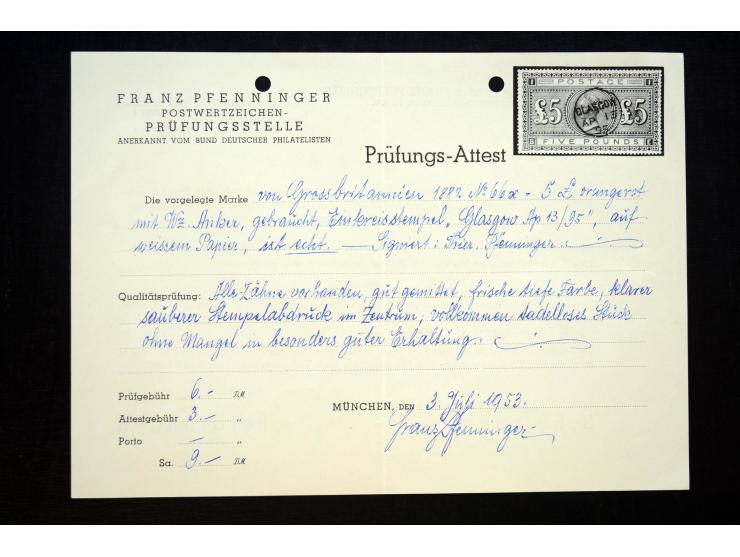 FRANZ PFENNINGER
POSTWERTZEICHEN-
PRÜFUNGSSTELLE
ANERKANNT VOM BUND DEUTSCHER PHILATELISTEN
POSTAGE
£5 GLASGOW AP 13 95 £5
FIVE POUNDS
Prüfungs-Attest
Die vorgelegte Marke von Grossbritannien 1882 No 66a - 5 £ orangerot
mit Wz. Anker, gebraucht, Einkreisstempel „Glasgow Ap 13/95", auf
weissem Papier, ist echt. — Signiert: Thier, Pfenninger.
Qualitätsprüfung: Alle Zähne vorhanden, gut gemittet, frische tiefe Farbe, klarer
sauberer Stempelabdruck im Zentrum, vollkommen tadelloses Stück
ohne Mangel in besonders guter Erhaltung.
Prüfgebühr 6.- DM
Attestgebühr 3.- „
Porto — „
Sa. 9.- DM
MÜNCHEN, DEN 3. Juli 1953.
Franz Pfenninger